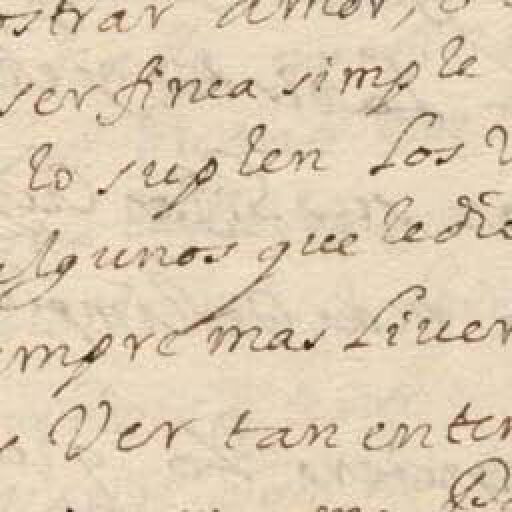 ostrar amor,
ser finca simple
lo suplen Los
Algunos que le die
empre mas Liver
Ver tan enter